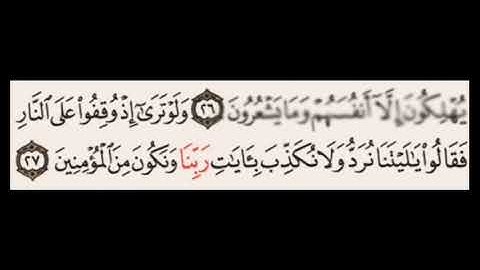 يُهْلِكُونَ إِلَّآ أَنفُسَهُمْ وَمَا يَشْعُرُونَ ٢٦ وَلَوْ تَرَىٰٓ إِذْ وُقِفُوا۟ عَلَى ٱلنَّارِ
فَقَالُوا۟ يَٰلَيْتَنَا نُرَدُّ وَلَا نُكَذِّبَ بِـَٔايَٰتِ رَبِّنَا وَنَكُونَ مِنَ ٱلْمُؤْمِنِينَ ٢٧